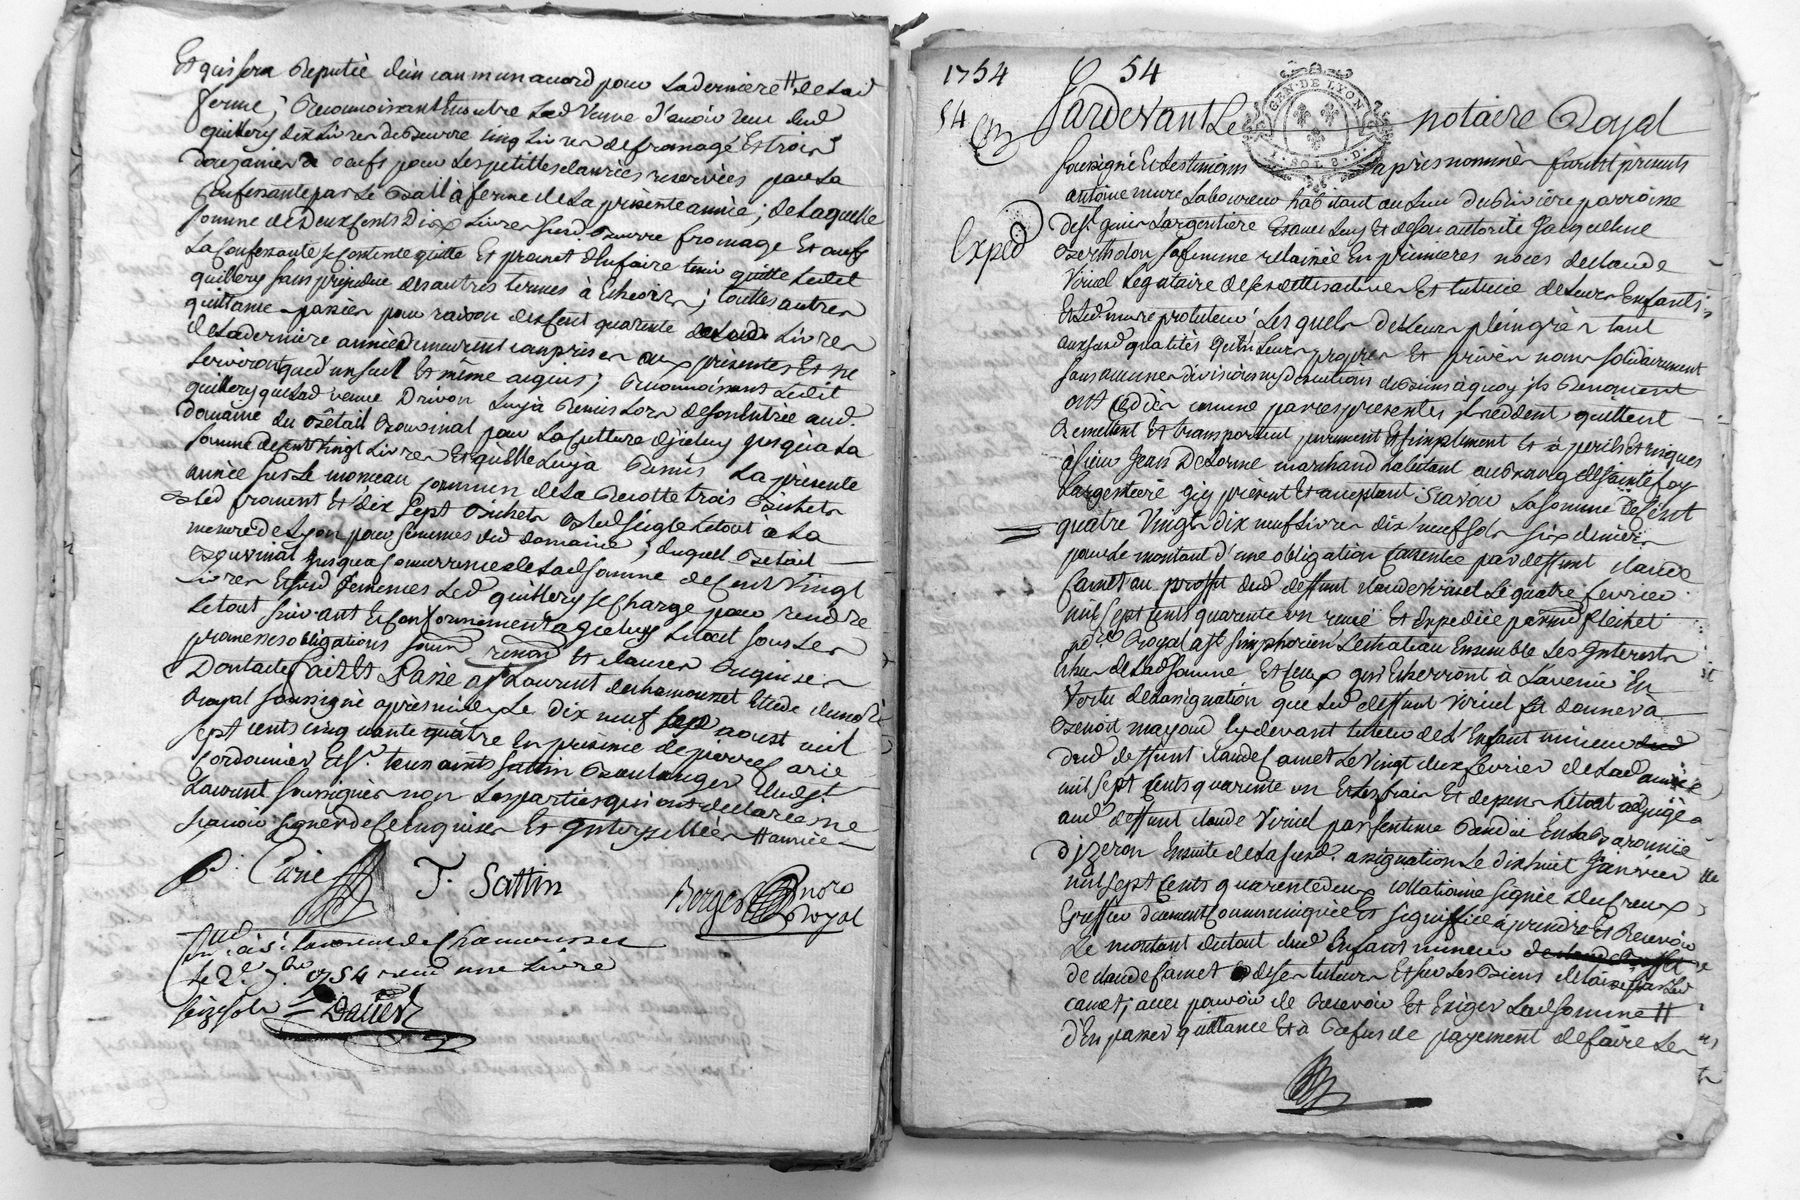 Et qui sera reputée d'un commun accord pour la derniere # de lad
ferme; Reconnoissant en outre lad Veuve d'avoir reçu dud
quillery dix livres de beurre cinq livres de fromage Et trois
douzaines oeufs pour les petittes danrées reservées par la
Confessante par le Bail à ferme de la presente année; de laquelle
somme de Deux cents Dix livres susd. beurre fromage Et oeufs
la Confessante se contente quitte Et promet d'en faire tenir quitte ledit
quillery sans prejudice des autres termes à Echeoir; touttes autres
quittances passées pour raison desd cent quarante livres
de la derniere année demeurent comprises aux presentes Et ne
serviront que d'un seul Et même acquis; Reconnoissant ledit
quillery que lad veuve Drivon luy a Remis lors de son Entrée aud.
domaine du Bétail Bouvinal pour la Culture d'iceluy jusqu'à la
somme de cent vingt livres Et quelle luy a Remis la presente
année sur le monceau commun de la Recolte trois Bichets
bled froment Et dix sept bichets bled seigle le tout à la
mesure de Lyon pour semences dud domaine; duquel Betail
bouvinal jusqu'a concurrance de lad somme de cent Vingt
livres Et susd semences led quillery se charge pour rendre
le tout suivant Et conformement a iceluy le tout sous les
promesses obligations soum renon Et clauses Requises
Dont acte Fait Et Passé a St Laurent de chamousset Etude du no.re
royal soussigné après midy Le dix neuf aoust mil
sept cents cinquante quatre En presence de pierre Carie
Cordonnier Et Sr. toussaint sattin Boulanger dud St.
Laurent soussignés non les parties qui ont declaré ne
scavoir signer de ce Enquises Et Interpellées # année
P. Carie T. Sattin
Berger no.re
Royal
Con.lé à St. Laurent de Chamousset
le 2.e 7.bre 1754 reçu une livre
seize sols
Dalier
1754 54
54 Pardevant Le notaire Royal
GEN. DE LYON
1. SOL 8. D.
soussigné Et les temoins après nommés furent présents
antoine mure Laboureur habitant au lieu du Rivière parroisse
Exped
de st. genis Largentière Et avec luy Et de son autorité Jacqueline
Bertholon sa femme relaissée En premieres noces de claude
Viricel legataire de ses dettes actives Et tutrice de leurs Enfants
Et led mure protuteur Lesquels de leurs plein grés tant
auxsusd qualités qu'en leurs propres Et privés noms solidairement
sans aucunes divisions ny discutions de biens à quoy ils Renoncent
ont cédés comme par ces presentes ils ceddent quittent
Remettent Et transportent purement Et simplement Et à perils Et risques
à sieur Jean Delorme marchand habitant au bourg de Sainte foy
Largentiere icy présent Et acceptant Scavoir la somme de Cent
quatre Vingts dix neuf livres dix neuf sols six deniers
pour le montant d'une obligation consentie par deffunt claude
Camet au proffit dud deffunt claude Viricel le quatre fevrier
mil sept cents quarante un reçue Et Expediée par Flechet
no.re Royal a St simphorien le chateau Ensemble les Interests
Echus de lad somme Et ceux qui Echerront à L'avenir En
Vertu de l'assignation que led deffunt Viricel fit donner a
Benoit mayoud cy devant tuteur de L'Enfant mineur
dud deffunt claude Camet le Vingt deux fevrier de lad année
mil sept cents quarante un Et les frais Et depens le tout adjugé
aud deffunt claude Viricel par sentence Randüe En la Baronnie
d'yzeron Ensuite de la susd. assignation le dix huit Janvier
mil sept cents quarante deux collationné signée Ducreux
Greffier duement Communiquée Et signiffiée à prendre Et Recevoir
le montant du tout dud Enfant mineur
de claude Camet de ses tuteurs Et sur les Biens delaissés par led
camet; avec pouvoir de Recevoir Et Exiger lad somme #
d'En passer quittance Et à Refus de payement de faire les